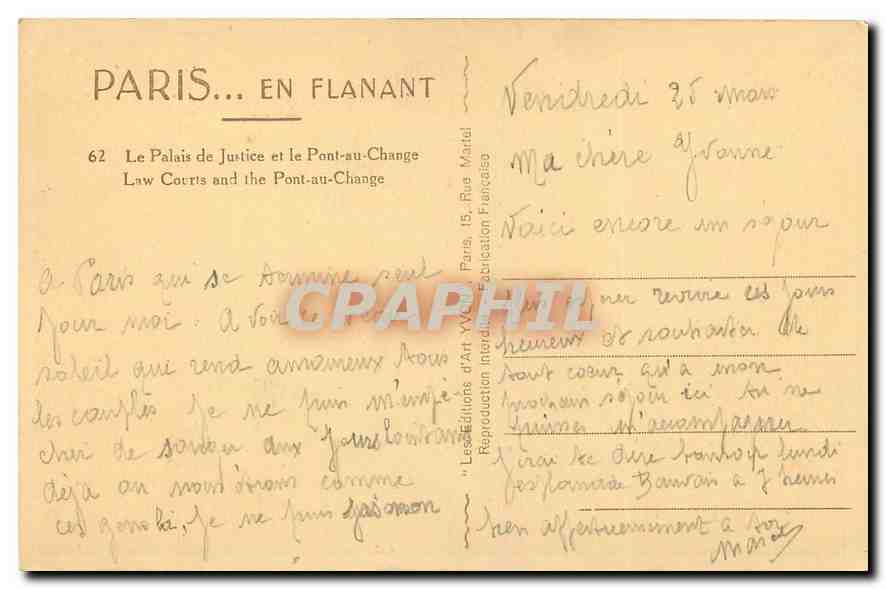 PARIS... EN FLANANT
62 Le Palais de Justice et le Pont-au-Change
Law Courts and the Pont-au-Change
"Les Editions d'Art YVON", Paris, 15, Rue Martel
Reproduction Interdite Fabrication Française
CPAPHIL
Vendredi 25 mars
Ma chère Yvonne
Voici encore un séjour
à Paris qui se termine seul
pour moi. A voir ce
soleil qui rend amoureux tous
les couples je ne puis m'empê-
cher de songer aux jours lointains
déjà où nous étions comme
ces gens là, je ne puis
revivre ces jours
heureux et souhaiter de
tout coeur qu'à mon
prochain séjour ici tu ne
puisses m'accompagner
J'irai te dire bonsoir lundi
Beauvais à 7 heures
bien affectueusement à toi
Marcel